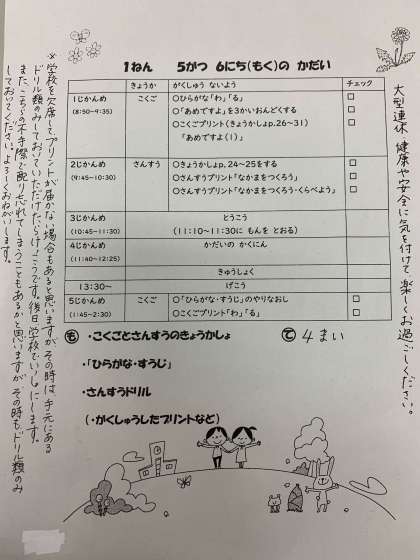 1ねん 5がつ 6にち(もく)の かだい
きょうか がくしゅう ないよう チェック
1じかんめ
(8:50~9:35)
こくご
○ひらがな「わ」「る」 □
○「あめですよ」を3かいおんどくする □
○こくごプリント(きょうかしょp.26~31) □
「あめですよ(1)」
2じかんめ
(9:45~10:30)
さんすう
○きょうかしょp.24~25をする □
○さんすうプリント「なかまをつくろう」 □
○さんすうプリント「なかまをつくろう・くらべよう」 □
3じかんめ
(10:45~11:30)
とうこう
(11:10~11:30に もんを とおる)
4じかんめ
(11:40~12:25)
かだいの かくにん
きゅうしょく
13:30~ げこう
5じかんめ
(1:45~2:30)
こくご
○「ひらがな・すうじ」のやりなおし □
○こくごプリント「わ」「る」 □
も ・こくごとさんすうのきょうかしょ
・「ひらがな・すうじ」
・さんすうドリル
(・がくしゅうしたプリントなど)
て 4まい
大型連休 健康や安全に気を付けて、楽しくお過ごしください。
※学校を欠席してプリントが届かない場合もあると思いますが、その時は、手元にある
ドリル類のみしておいていただけたらけっこうです。後日、学校でいっしょにします。
また、こちらの不手際で配り忘れてしまうこともあるかと思いますが、その時も、ドリル類のみ
しておいてください。よろしくおねがいします。